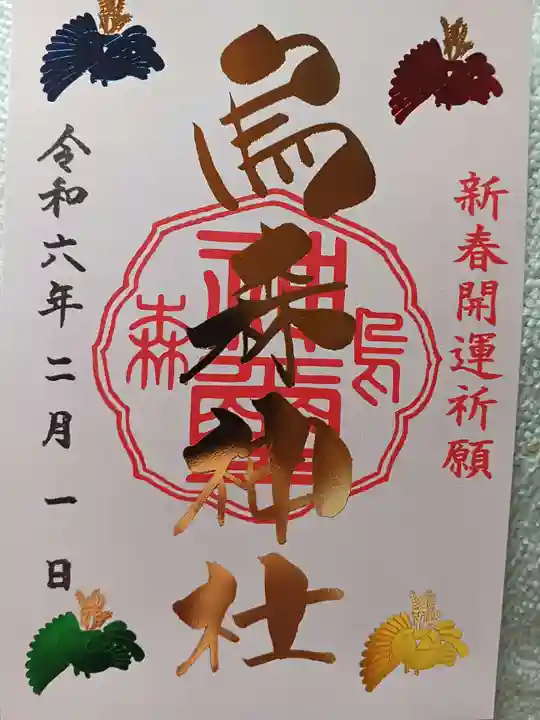 新春開運祈願
烏森神社
烏
森
令和六年二月一日